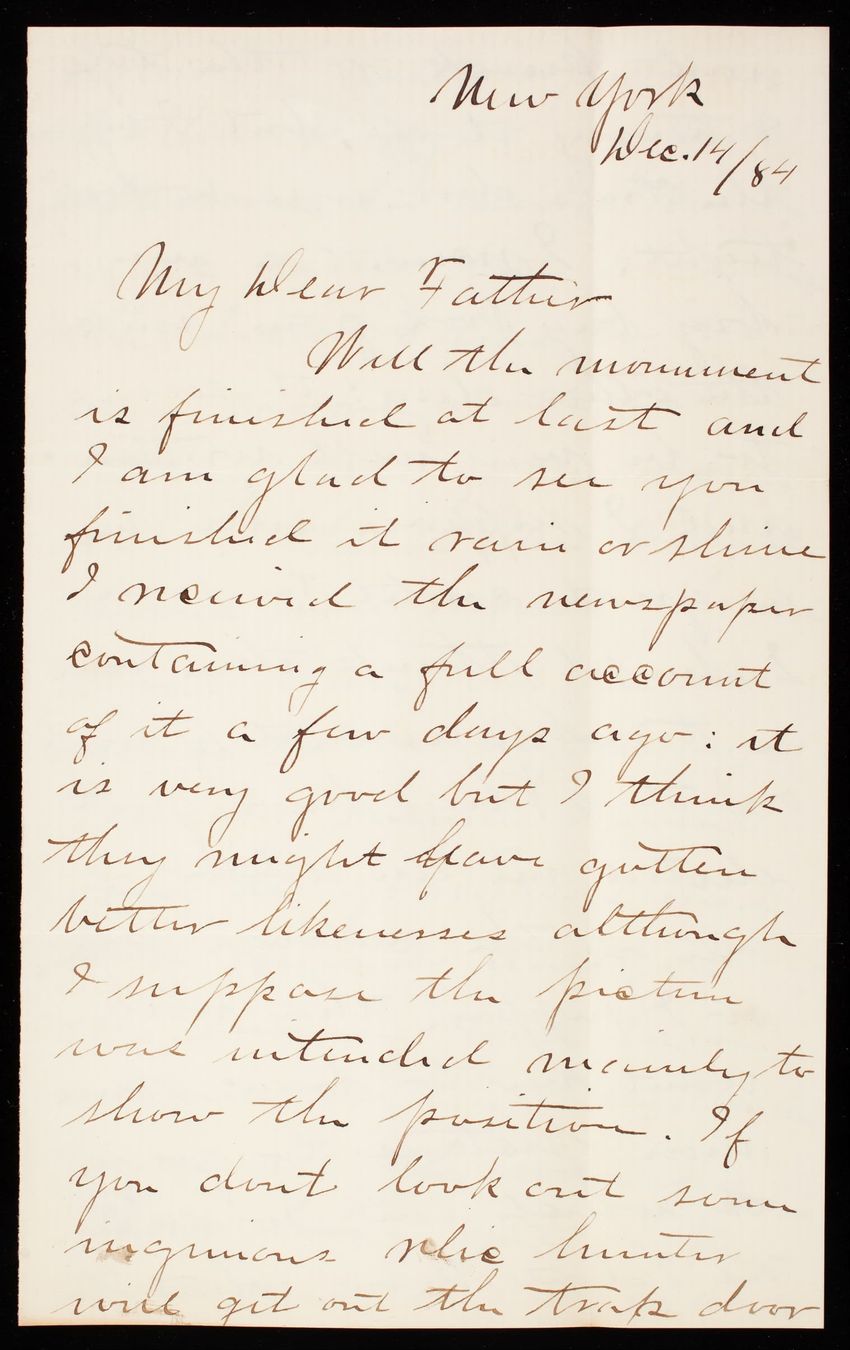 New York
Dec. 14/84
My Dear Father
Well the monument
is finished at last and
I am glad to see you
finished it rain or shine
I received the newspaper
containing a full account
of it a few days ago: it
is very good but I think
they might have gotten
better likenesses although
I suppose the picture
was intended mainly to
show the position. If
you dont look out some
ingenious relic hunter
will get out the trap door